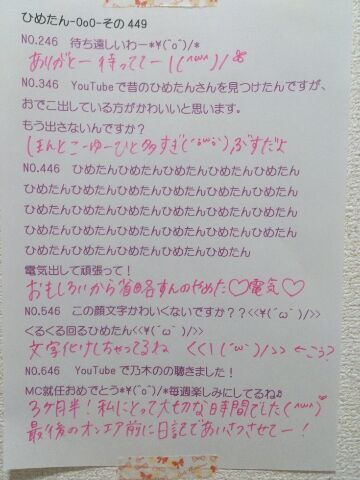 ひめたん-OoO-その449
NO.246 待ち遠しいわー*¥(^o^)/*
ありがとー待っててー!(^ω^)/
NO.346 YouTubeで昔のひめたんさんを見つけたんですが、
おでこ出している方がかわいいと思います。
もう出さないんですか？
ほんとこーゆーひと多すぎ(´ω`)ぶすだよ
NO.446 ひめたんひめたんひめたんひめたんひめたん
ひめたんひめたんひめたんひめたんひめたんひめたん
ひめたんひめたんひめたんひめたんひめたんひめたん
ひめたんひめたんひめたんひめたんひめたんひめたん
ひめたんひめたんひめたんひめたんひめたん
電気出して頑張って！
おもしろいから省略すんのやめた♡電気♡
NO.546 この顔文字かわいくないですか？？<<¥(´ω｀)/>>
<くるくる回るひめたん<<¥(´ω｀)/>>
文字化けしちゃってるね <<\(´ω`)/>> ←こう？
NO.646 YouTubeで乃木のの聴きました！
MC就任おめでとう*¥(^o^)/*毎週楽しみにしてるね♪
3ヶ月半！私にとって大切な時間でした(^ω^)
最後のオンエア前に日記であいさつさせてー！